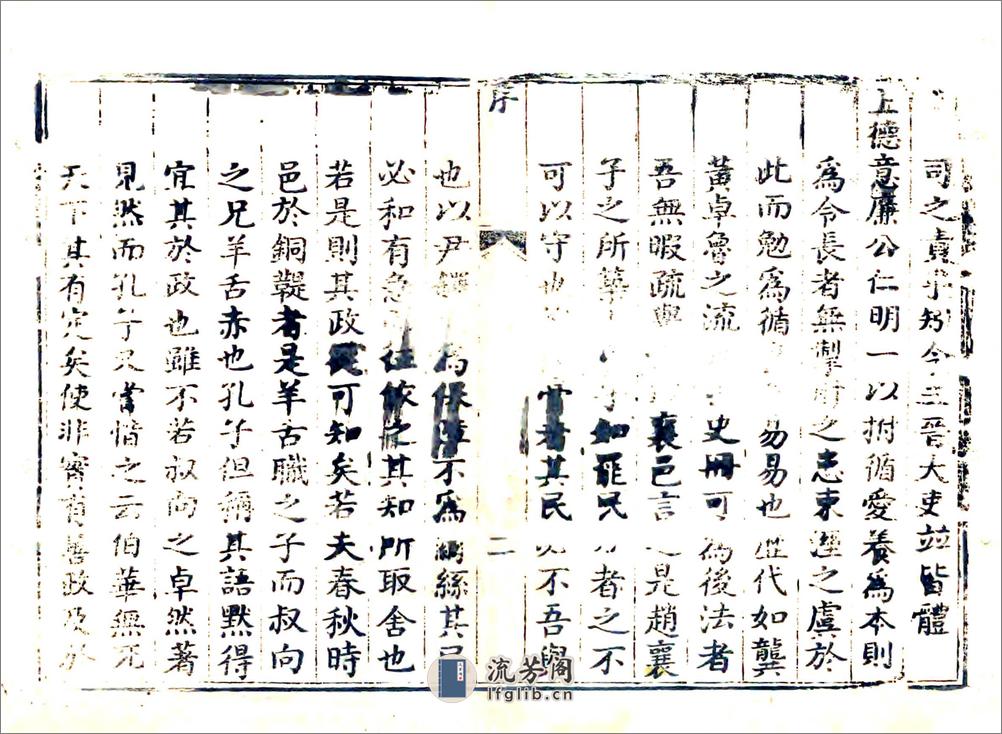 司之責乎矧今主晉大吏並皆體
上德意廉公仁明一以拊循愛養為本則
為令長者無掣肘之患束溼之虞於
此而勉為循 易易也 代如龔
黃卓魯之流 史冊可 為後法者
吾無暇疏舉 襄邑言 是趙襄
子之所 子如罷民 者之不
可以守也 其民 不吾與
序
二
也以尹鐸 為保障不為繭絲其
必和有急 往依之其知所取舍也
若是則其政 可知矣若夫春秋時
邑於銅鞮者是羊舌職之子而叔向
之兄羊舌赤也孔子但稱其語默得
宜其於政也雖不若叔向之卓然著
見然而孔子又嘗惜之云伯華無死
天下其有定矣使非實有善政及於
流芳阁
lfglib.cn